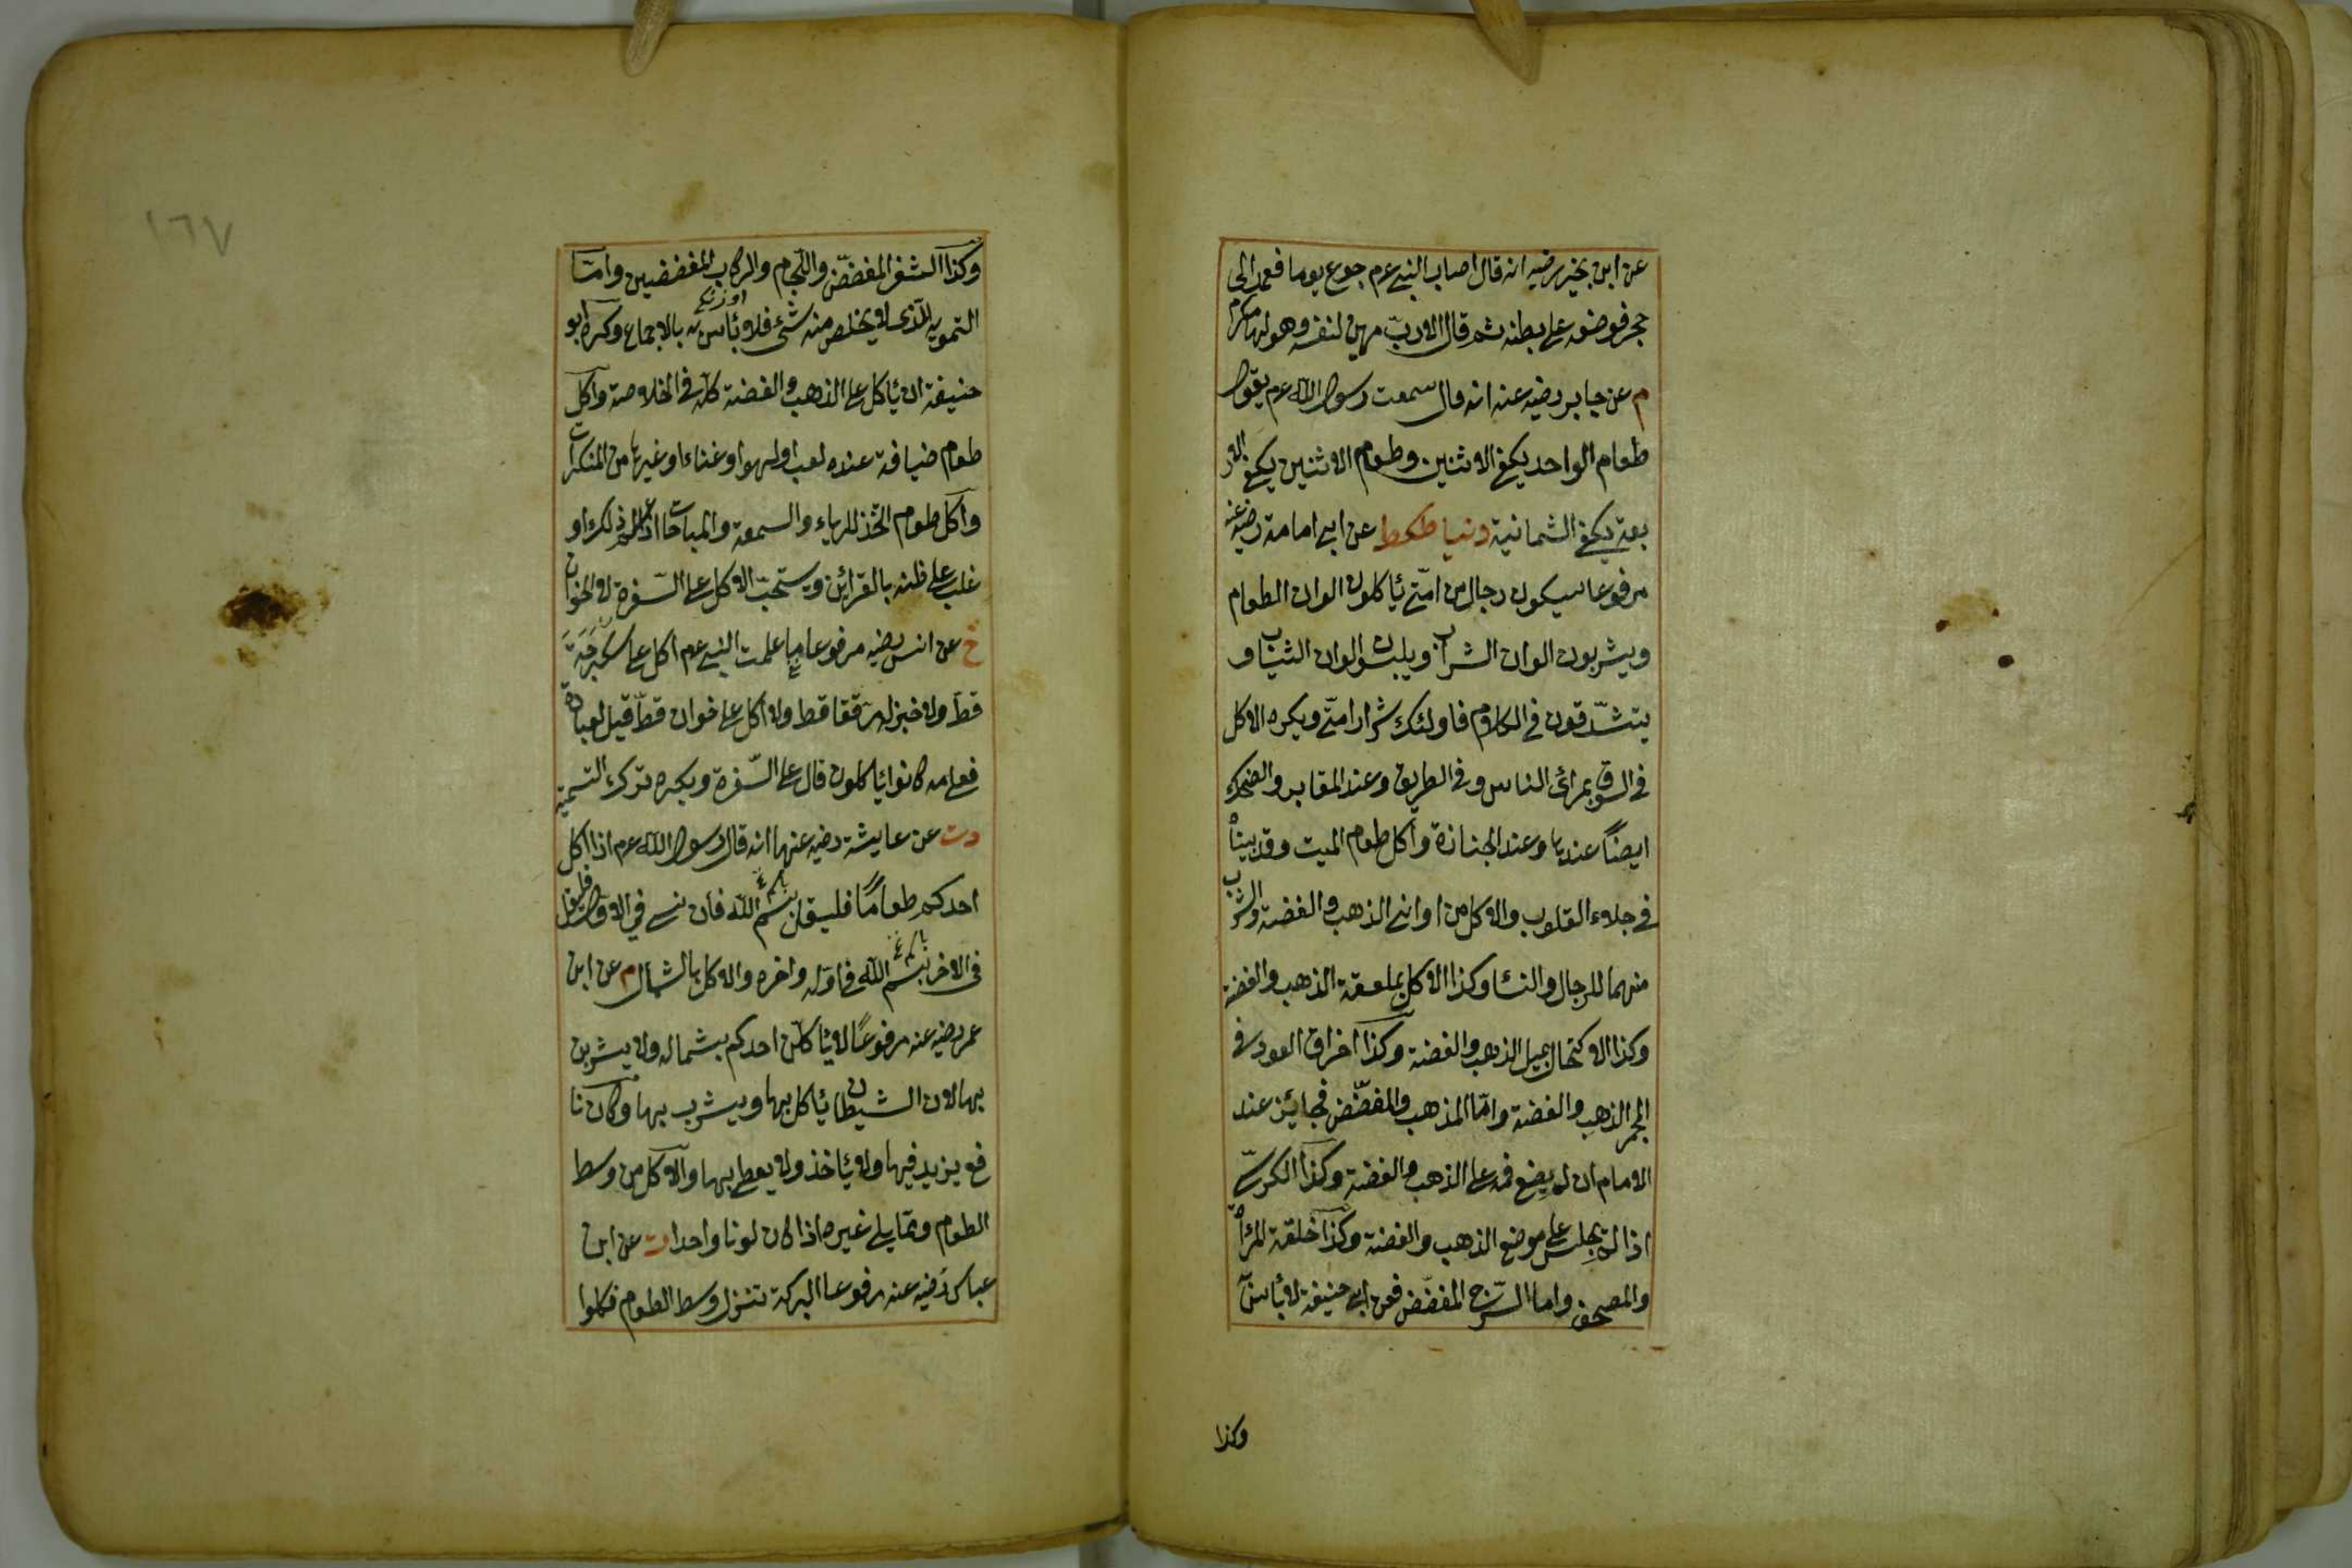 عن ابن بجير رضيه انه قال اصاب النبي عم جوع يوما فعمد الى
حجر فوضعه على بطنه ثم قال الا رب مهين لنفسه وهو لها مكرم
م عن جابر رضيه عنه انه قال سمعت رسول الله عم يقول
طعام الواحد يكفي الاثنين وطعام الاثنين يكفي الار
بعة يكفي الثمانية دنيا طكط عن ابي امامة رضيه عنه
مرفوعا سيكون رجال من امتي يأكلون الوان الطعام
ويشربون الوان الشراب ويلبسون الوان الثياب و
يتشدقون في الكلام فاولئك شرار امتي ويكره الاكل
في السوق بمرأى الناس وفي الطريق وعند المقابر والضحك
ايضاً عندها وعند الجنازة واكل طعام الميت وقد بيناه
في جلاء القلوب والاكل من اواني الذهب والفضة والشرب
منهما للرجال والنسا وكذا الاكل بملعقة الذهب والفضة
وكذا الاكتحال بميل الذهب والفضة وكذا احراق العود في
المجمر الذهب والفضة واما المذهب والمفضض فجائز عند
الامام ان لم يضع فمه على الذهب والفضة وكذا الكرسي
اذا لم يجلس على موضع الذهب والفضة وكذا حلقة المرأة
والمصحف واما السرج المفضض فعن ابي حنيفة لا بأس
وكذا
١٦٧
وكذا الثفر المفضض واللجام والركاب المفضضين واما
التمويه الذي لا يخلص منه شئ فلا بأس به بالاجماع وكره ابو
حنيفة ان يأكل على الذهب والفضة كله في الخلاصة واكل
طعام ضيافة عنده لعب او لهو او غناء او غيرها من المنكرات
واكل طعام اتخذ للرياء والسمعة والمباحات اذا علم ذلك او
غلب على ظنه بالقرائن ويستحب الاكل على السفرة لا الخوان
خ عن انس رضيه مرفوعا ما علمت النبي عم اكل على سكرجة
قط ولا خبز له مرققا قط ولا اكل على خوان قط قيل لقتادة
فعلامه كانوا يأكلون قال على السفرة ويكره ترك التسمية
دت عن عايشة رضيه عنها انه قال رسول الله عم اذا اكل
احدكم طعامًا فليقل بسم الله فان نسي في الاول فليقل
في الاخر بسم الله في اوله واخره والاكل بالشمال م عن ابن
عمر رضيه عنه مرفوعًا لا يأكلن احدكم بشماله ولا يشربن
بها لان الشيطان يأكل بها ويشرب بها وكان نا
فع يزيد فيها ولا يأخذ ولا يعطي بها والاكل من وسط
الطعام ومما يلي غيره اذا كان لونا واحدا ت عن ابن
عباس رضيه عنه مرفوعا البركة تنزل وسط الطعام فكلوا